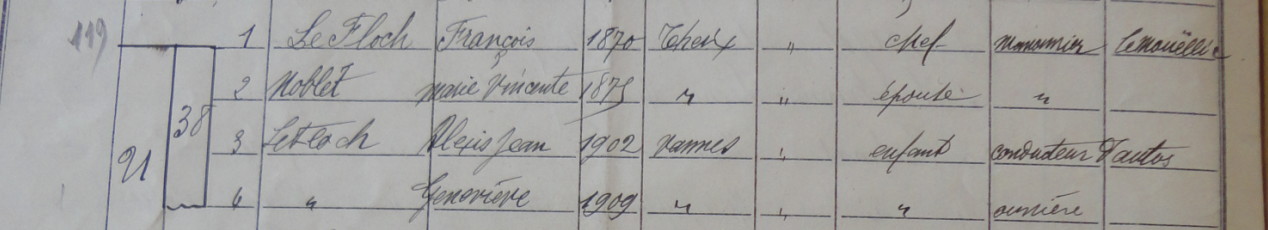 119 1 Le Floch François 1870 Theix " chef manouvrier Lemouëllic
2 Noblet marie Vincente 1875 " " épouse "
38 3 Lefloch Alexis Jean 1902 Vannes " enfant conducteur d'autos
21 4 " Geneviève 1909 " " " ouvrière